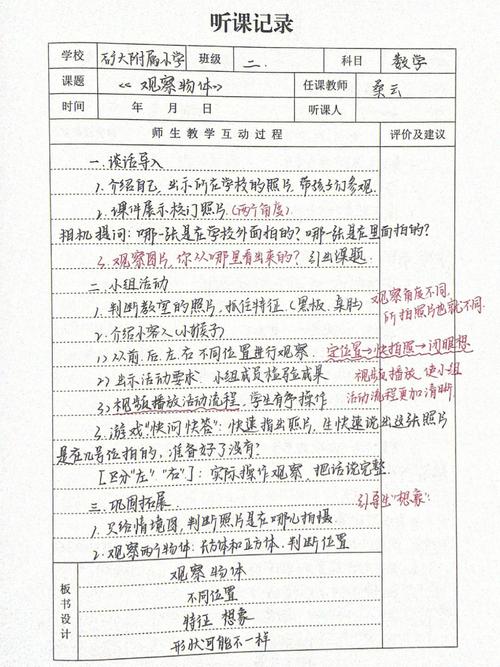 听课记录
学校 矿大附属小学 班级 二. 科目 数学
课题 《观察物体》 任课教师 桑云
时间 年 月 日 听课人
师生教学互动过程 评价及建议
一.谈话导入
1.介绍自己,出示所在学校的照片,带孩子们参观.
2.课件展示校门照片.(两个角度)
相机提问:哪一张是在学校外面拍的?哪一张是在里面拍的?
3.观察图片,你从哪里看出来的?引出课题.
二.小组活动
1.判断教室的照片,抓住特征(黑板.桌肚)
观察角度不同,
所拍照片也就不同.
2.介绍小客人(小猴子)
1)从前.后.左.右不同位置进行观察. 定位置→快拍照→闭眼想
2)出示活动要求.小组成员检验成果
视频播放,使小组
3)视频播放活动流程,学生有序操作
活动流程更加清晰.
3.游戏"快问快答":快速指出照片,生快速说出这张照片
是在几号位拍的,准备好了没有?
[区分"左""右"]:实际操作观察,把话说完整
三.巩固拓展
引导生"想象".
1.只给情境图,判断照片是在哪儿拍摄
2.观察两个物体:长方体和正方体.判断位置
板书设计
观察物体
不同位置
特征 想象
形状可能不一样